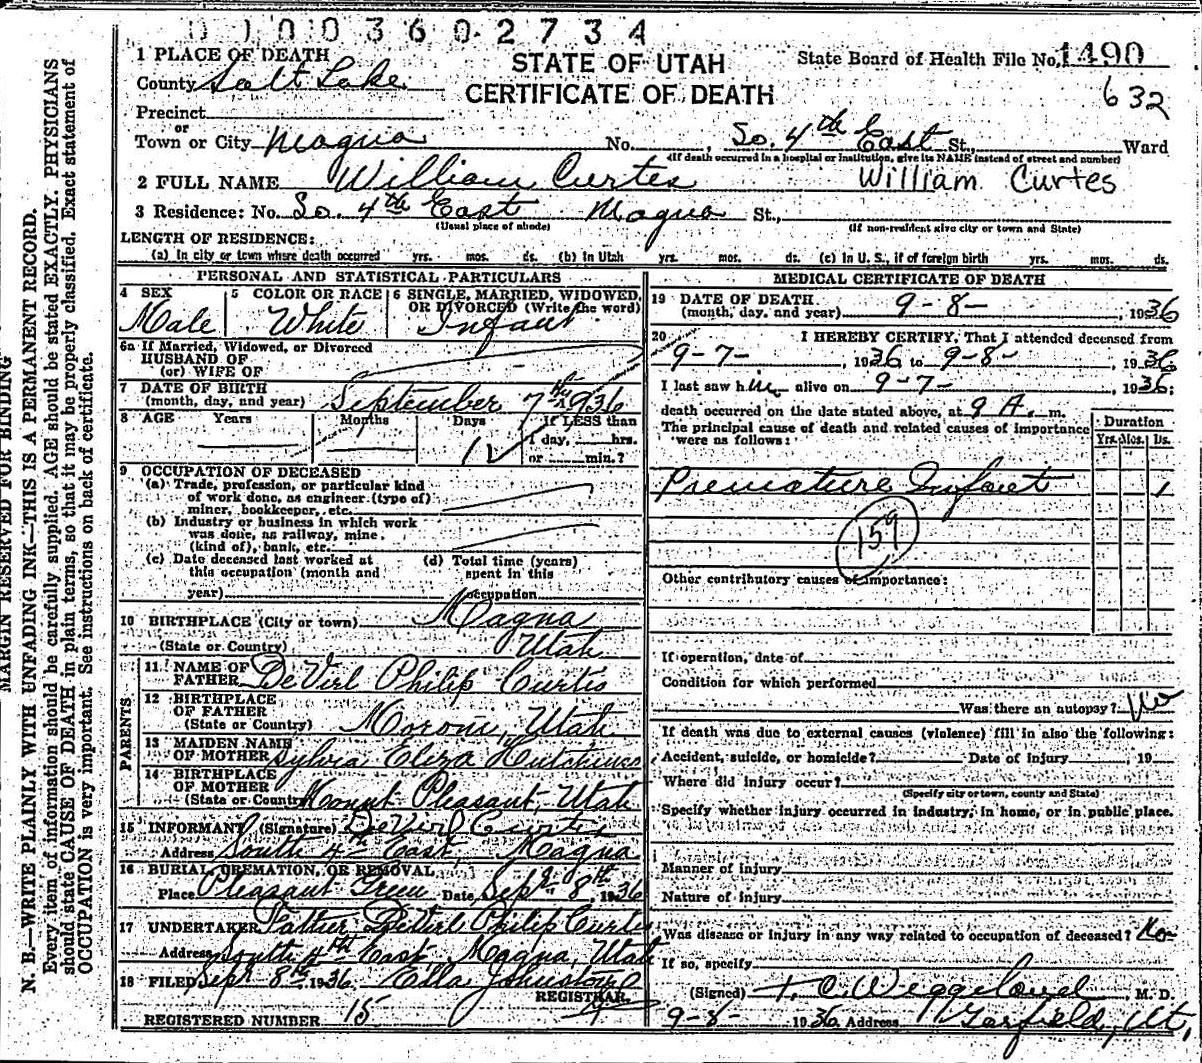 D 1 0 0 3 6 0 2 7 3 4
MARGIN RESERVED FOR BINDING
N. B.—WRITE PLAINLY WITH UNFADING INK—THIS IS A PERMANENT RECORD.
Every item of information should be carefully supplied. AGE should be stated EXACTLY. PHYSICIANS
should state CAUSE OF DEATH in plain terms, so that it may be properly classified. Exact statement of
OCCUPATION is very important. See instructions on back of certificate.
STATE OF UTAH
CERTIFICATE OF DEATH
State Board of Health File No. 1490
632
1 PLACE OF DEATH
County Salt Lake
Precinct
or
Town or City Magna No. , So. 4th East St., Ward
(If death occurred in a hospital or institution, give its NAME instead of street and number)
2 FULL NAME William Curtes William Curtes
3 Residence: No. So. 4th East Magna St.,
(Usual place of abode) (If non-resident give city or town and State)
LENGTH OF RESIDENCE:
(a) In city or town where death occurred yrs. mos. ds. (b) In Utah yrs. mos. ds. (c) In U. S., if of foreign birth yrs. mos. ds.
PERSONAL AND STATISTICAL PARTICULARS
4 SEX Male
5 COLOR OR RACE White
6 SINGLE, MARRIED, WIDOWED, OR DIVORCED (Write the word) Infant
6a If Married, Widowed, or Divorced
HUSBAND OF
(or) WIFE OF
7 DATE OF BIRTH
(month, day, and year) September 7th 1936
8 AGE Years Months Days If LESS than
1 1 day, hrs.
or min.?
9 OCCUPATION OF DECEASED
(a) Trade, profession, or particular kind
of work done, as engineer (type of)
miner, bookkeeper, etc.
(b) Industry or business in which work
was done, as railway, mine
(kind of), bank, etc.
(c) Date deceased last worked at
this occupation (month and
year)
(d) Total time (years)
spent in this
occupation
10 BIRTHPLACE (City or town) Magna
(State or Country) Utah
PARENTS
11 NAME OF
FATHER DeVirl Philip Curtis
12 BIRTHPLACE
OF FATHER
(State or Country) Moroni, Utah
13 MAIDEN NAME
OF MOTHER Sylvia Eliza Hutchings
14 BIRTHPLACE
OF MOTHER
(State or Country) Mount Pleasant, Utah
15 INFORMANT (Signature) DeVirl Curtis
Address South 4th East, Magna
16 BURIAL, CREMATION, OR REMOVAL
Place Pleasant Green Date Sept 8th, 1936
17 UNDERTAKER Father DeVirl Philip Curtis
Address South 4th East, Magna, Utah
18 FILED Sept 8th 1936 Ella Johnstone
REGISTRAR
REGISTERED NUMBER 15
MEDICAL CERTIFICATE OF DEATH
19 DATE OF DEATH
(month, day, and year) 9-8- , 1936
20 I HEREBY CERTIFY, That I attended deceased from
9-7- , 1936 to 9-8- , 1936
I last saw him alive on 9-7- , 1936;
death occurred on the date stated above, at 9 A. m.
The principal cause of death and related causes of importance
were as follows:
Duration
Yrs. Mos. Ds.
Premature Infant 1
159
Other contributory causes of importance:
If operation, date of
Condition for which performed
Was there an autopsy? No
If death was due to external causes (violence) fill in also the following:
Accident, suicide, or homicide? Date of injury , 19
Where did injury occur?
(Specify city or town, county and State)
Specify whether injury occurred in industry, in home, or in public place.
Manner of injury
Nature of injury
Was disease or injury in any way related to occupation of deceased? No
If so, specify
(Signed) T. C. Weggeland , M. D.
9-8- 1936 Address Garfield, Ut.